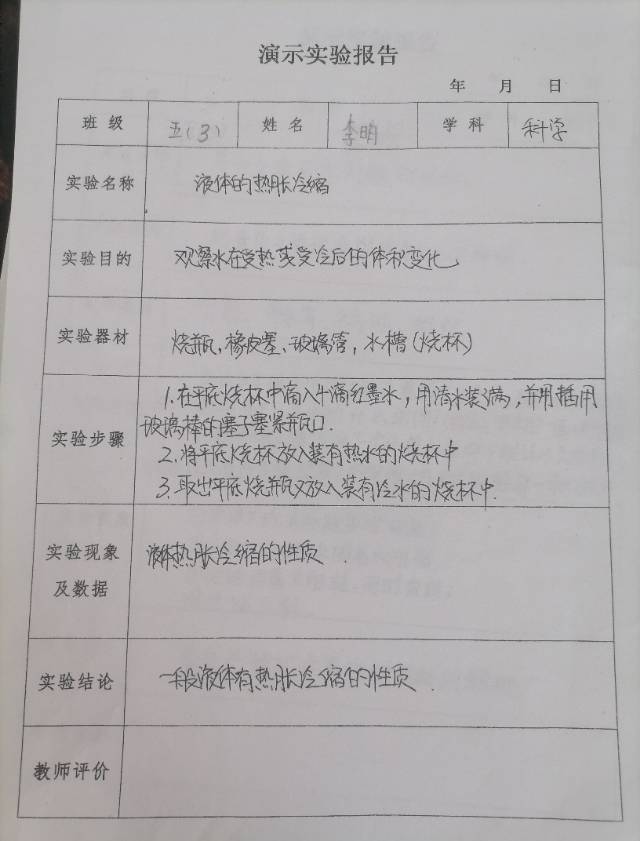 演示实验报告
年 月 日
班级 五(3) 姓名 李明 学科 科学
实验名称 液体的热胀冷缩
实验目的 观察水在受热或受冷后的体积变化
实验器材 烧瓶,橡皮塞、玻璃管,水槽(烧杯)
1.在平底烧杯中滴入几滴红墨水,用清水装满,并用插用
玻璃棒的塞子塞紧瓶口.
实验步骤
2.将平底烧杯放入装有热水的烧杯中
3.取出平底烧瓶又放入装有冷水的烧杯中.
实验现象
及数据
液体热胀冷缩的性质.
实验结论 一般液体有热胀冷缩的性质.
教师评价